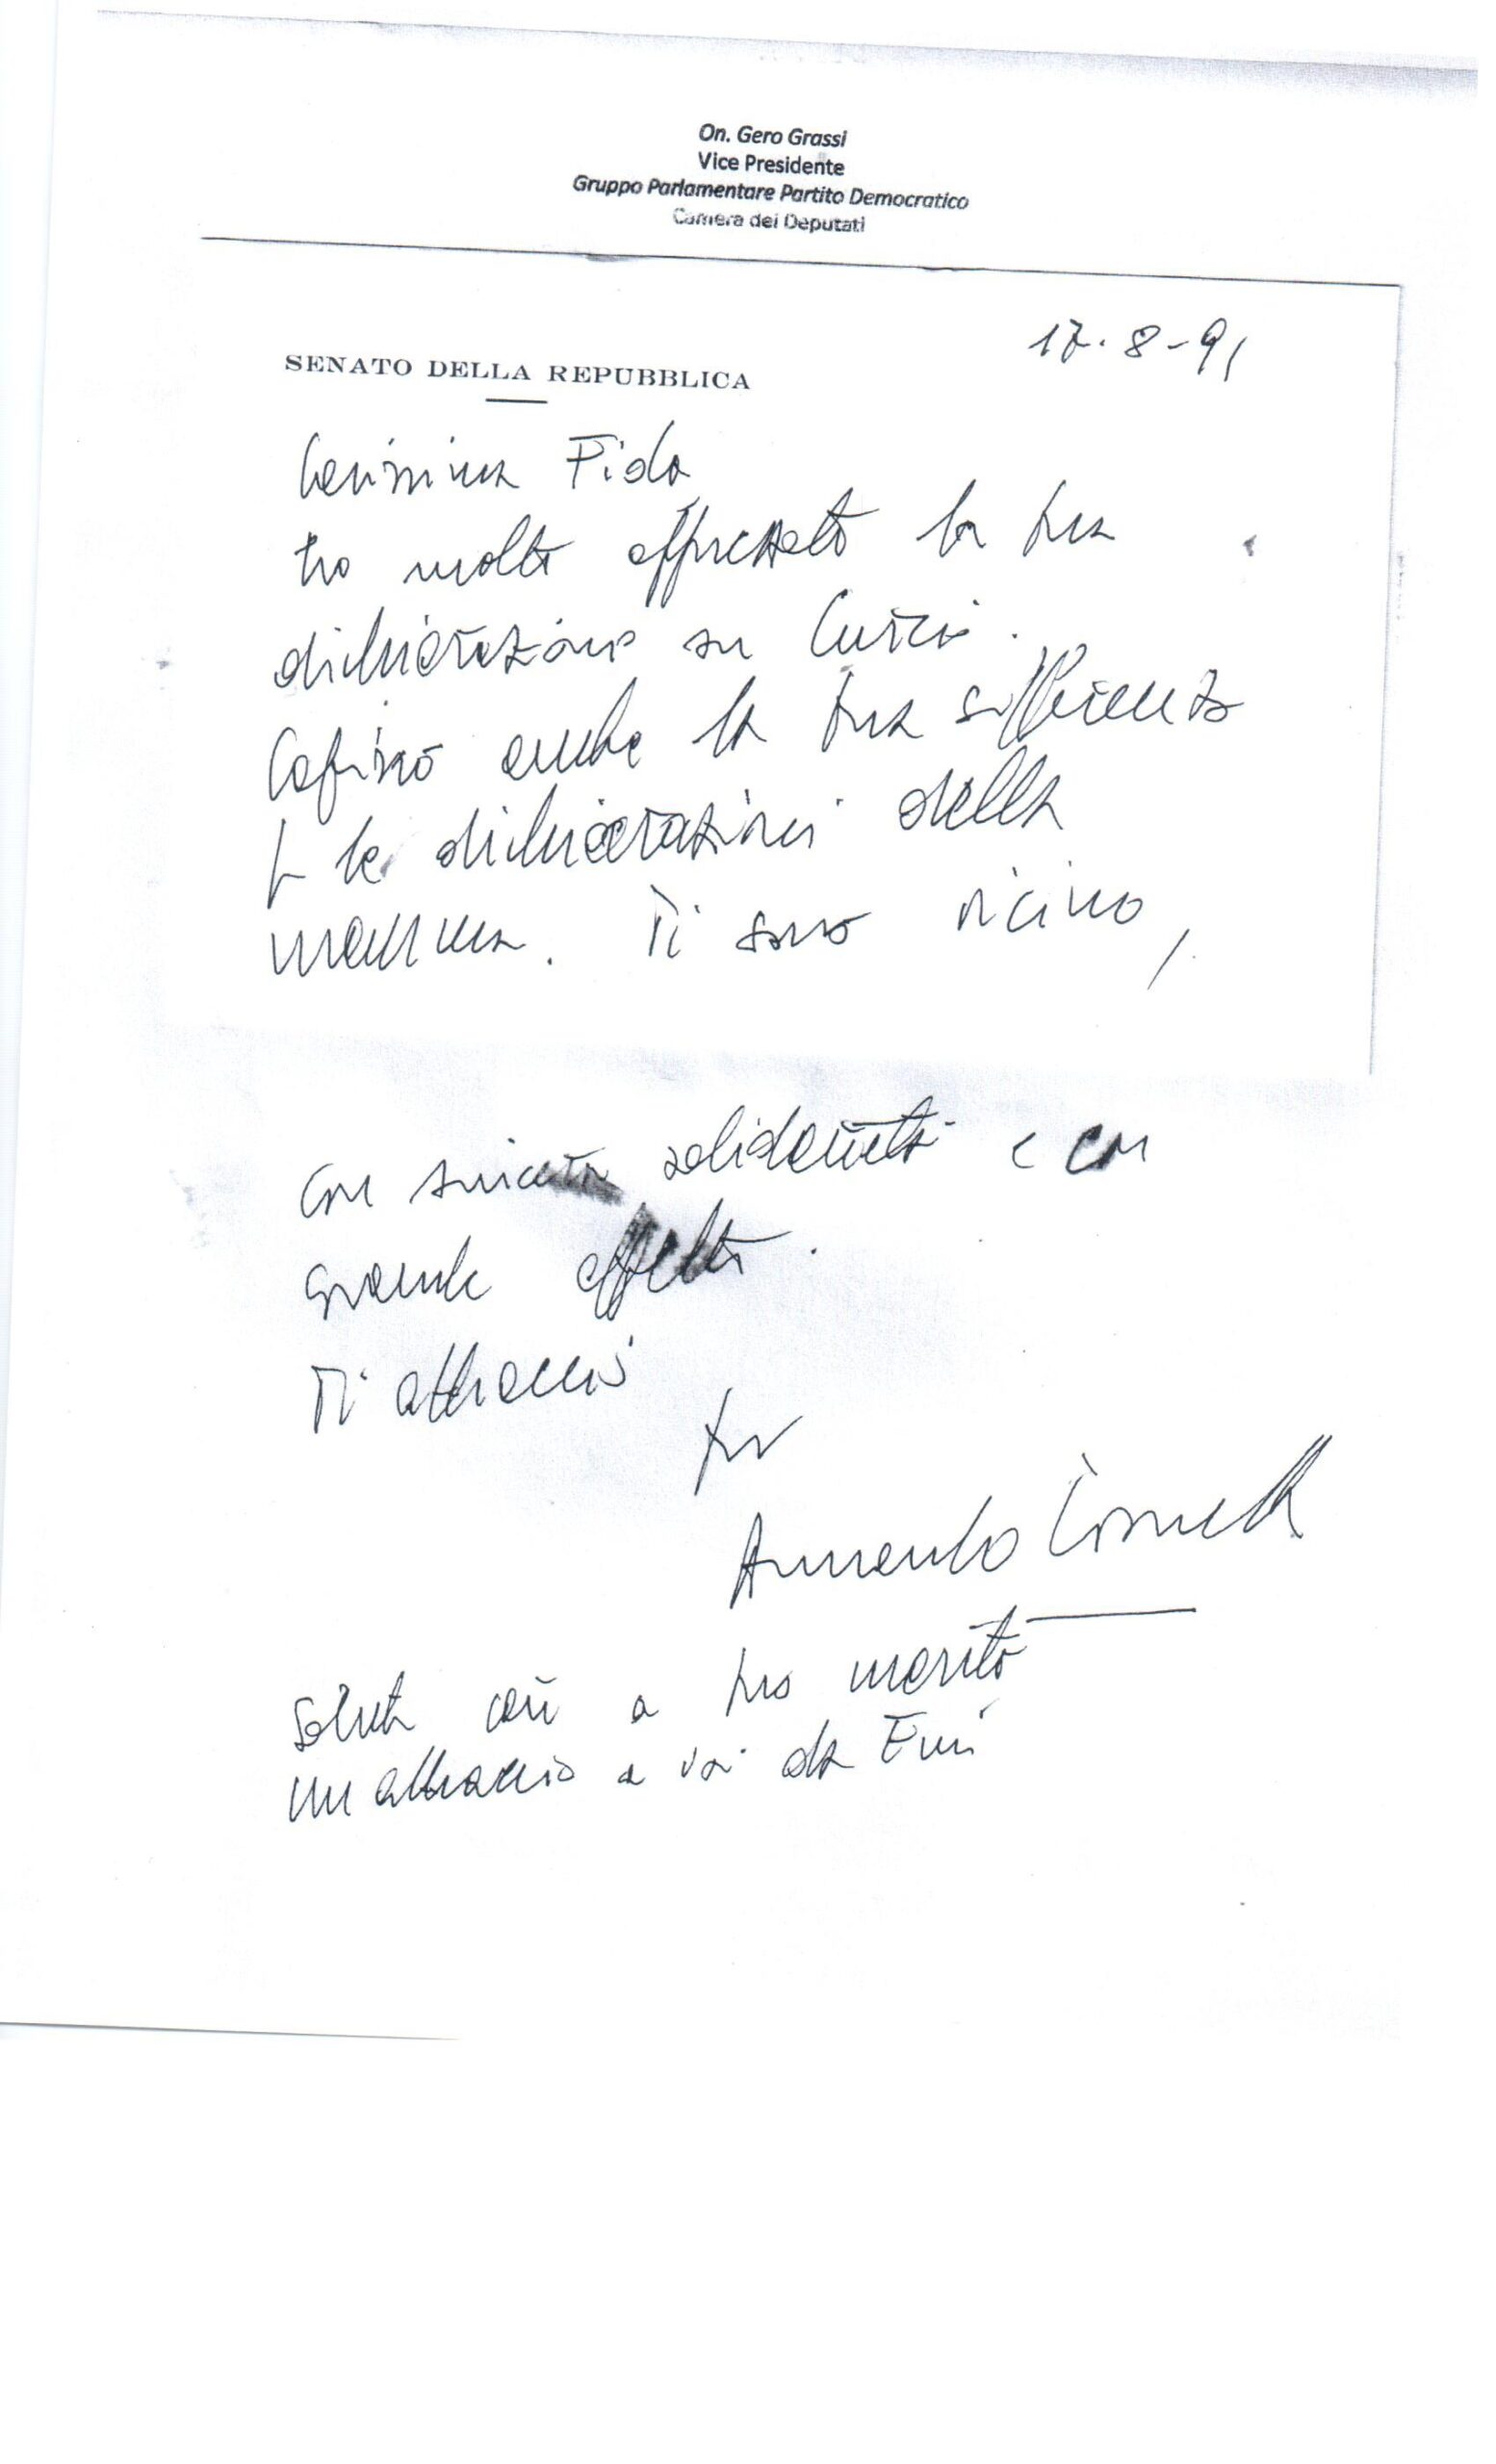 On. Gero Grassi
Vice Presidente
Gruppo Parlamentare Partito Democratico
Camera dei Deputati
17-8-91
SENATO DELLA REPUBBLICA
Carissima Fida
ho molto apprezzato la tua
dichiarazione su Curcio.
Capisco anche la tua sofferenza
x le dichiarazioni della
mamma. Ti sono vicino,
con sincera solidarietà e con
grande affetto.
Ti abbraccio
tuo
Saluti cari a tuo marito
un abbraccio a voi da